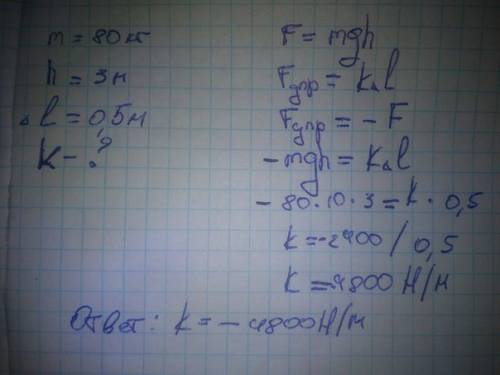 m = 80 кг
h = 3 м
△l = 0,5 м
K - ?
F = mgh
Fупр = K△l
Fупр = - F
- mgh = K△l
- 80 · 10 · 3 = K · 0,5
K = -2400 / 0,5
K = 4800 Н/м
Ответ: K = - 4800 Н/м